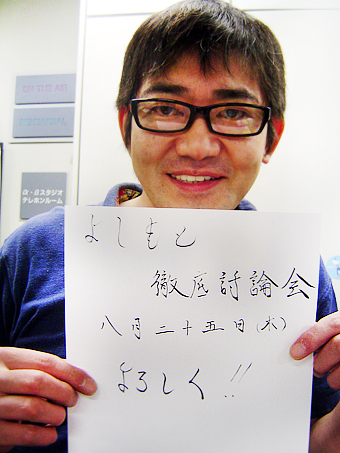 α・βスタジオ
テレホンルーム
よしもと
徹底討論会
八月二十五日(水)
よろしく!!